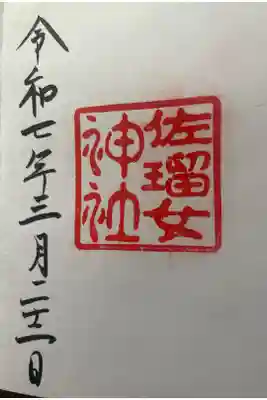 佐瑠女
神社
令和七年三月二十一日